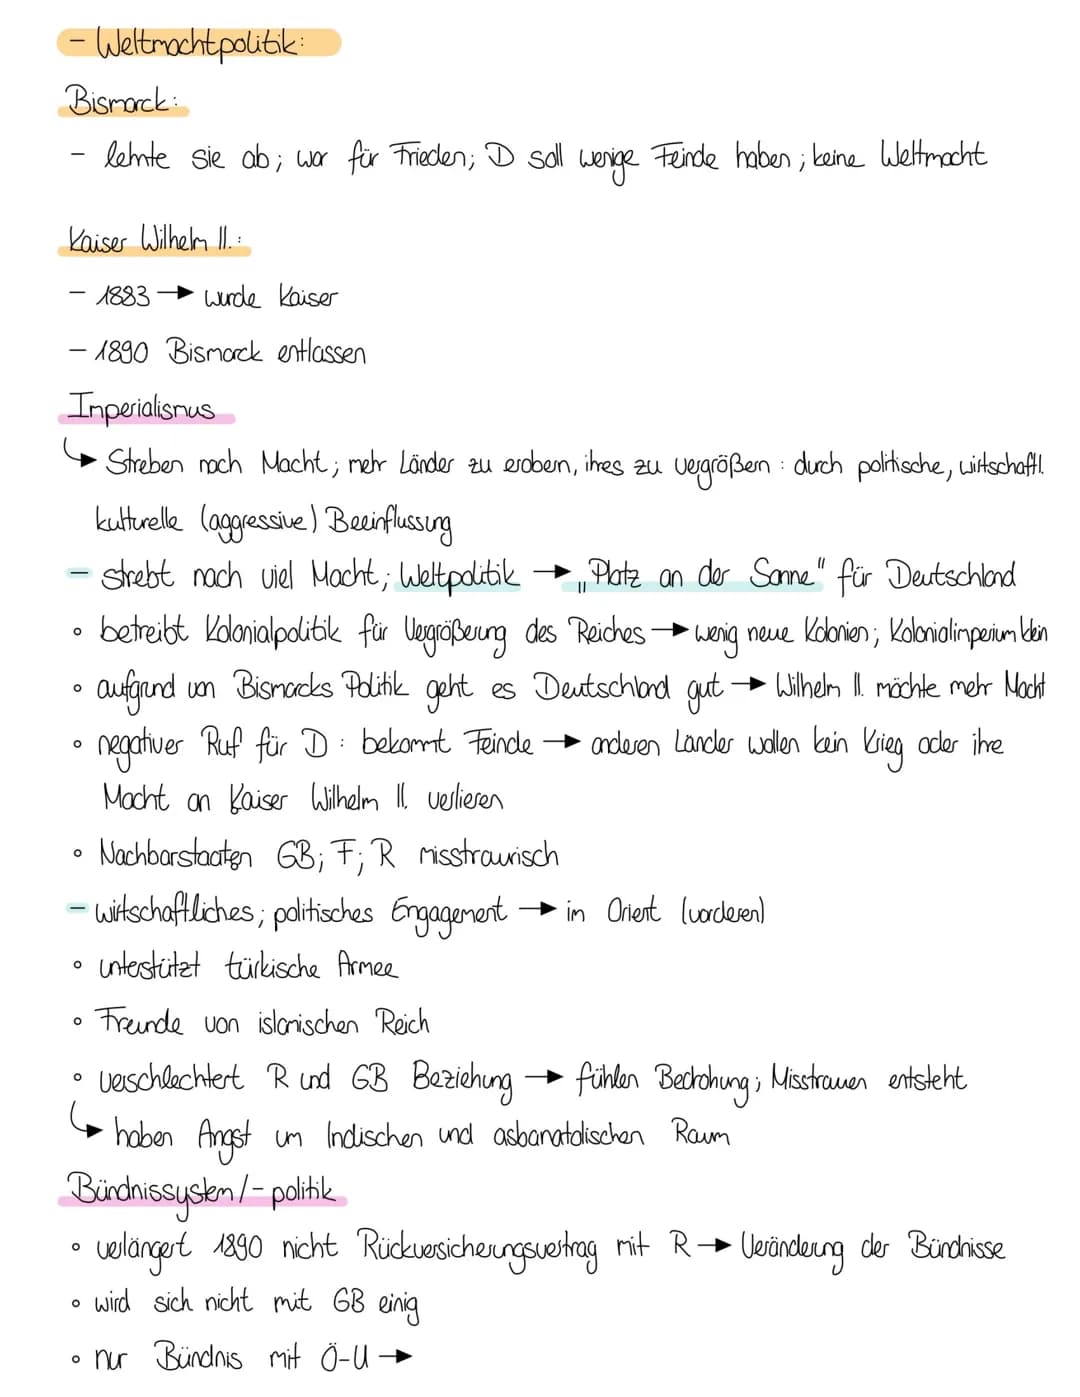 - Weltmachtpolitik:
Bismarck:
- lehnte sie ab; war für Frieden; D soll wenige Feinde haben; keine Weltmacht
Kaiser Wilhelm II.:
- 1883 → wurde Kaiser
- 1890 Bismarck entlassen
Imperialismus
↳ Streben nach Macht; mehr Länder zu erobern, ihres zu vergrößern : durch politische, wirtschaftl.
kulturelle (aggressive) Beeinflussung
- strebt nach viel Macht; Weltpolitik → „Platz an der Sonne" für Deutschland
• betreibt Kolonialpolitik für Vergrößerung des Reiches → wenig neue Kolonien; Kolonialimperium klein
• aufgrund von Bismarcks Politik geht es Deutschland gut → Wilhelm II. möchte mehr Macht
• negativer Ruf für D : bekommt Feinde → anderen Länder wollen kein Krieg oder ihre
Macht an Kaiser Wilhelm II. verlieren
• Nachbarstaaten GB; F; R misstraurisch
- wirtschaftliches; politisches Engagement → im Orient (vorderen)
• unterstützt türkische Armee
• Freunde von islamischen Reich
• verschlechtert R und GB Beziehung → fühlen Bedrohung; Misstrauen entsteht
↳ haben Angst um Indischen und asbanatolischen Raum
Bündnissystem/-politik
• verlängert 1890 nicht Rückversicherungsvertrag mit R → Veränderung der Bündnisse
• wird sich nicht mit GB einig
• nur Bündnis mit Ö-U →